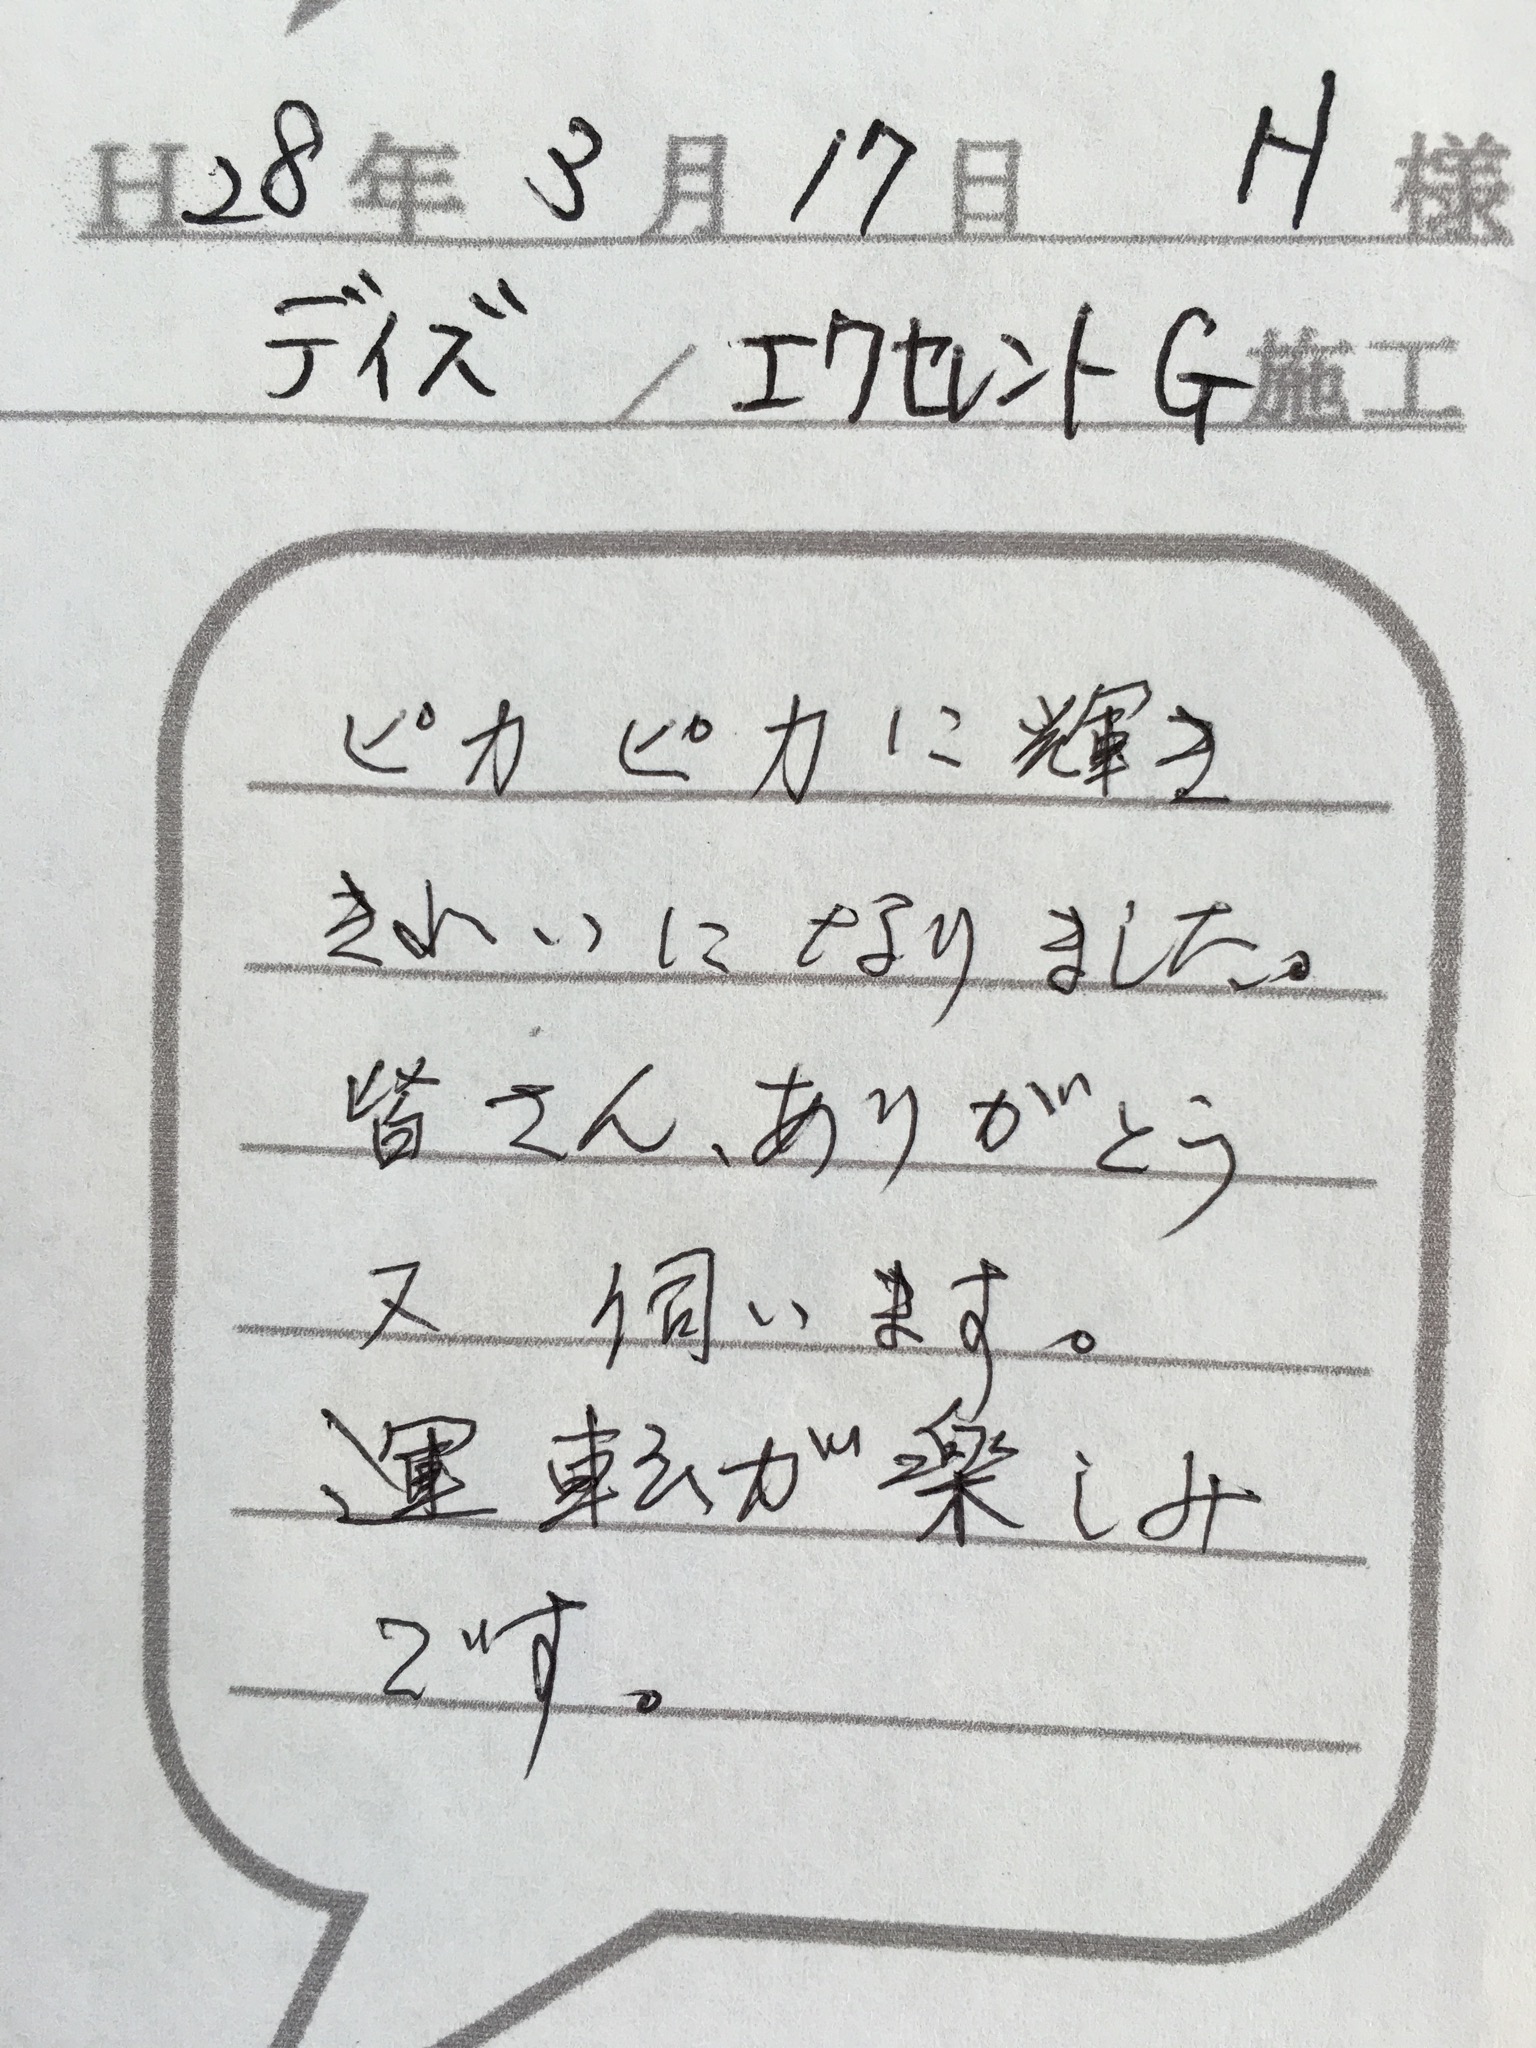 H28年 3月17日 H様
デイズ / エクセレントG施工
ピカピカに輝き
きれいになりました。
皆さん、ありがとう
又 伺います。
運転が楽しみ
です。